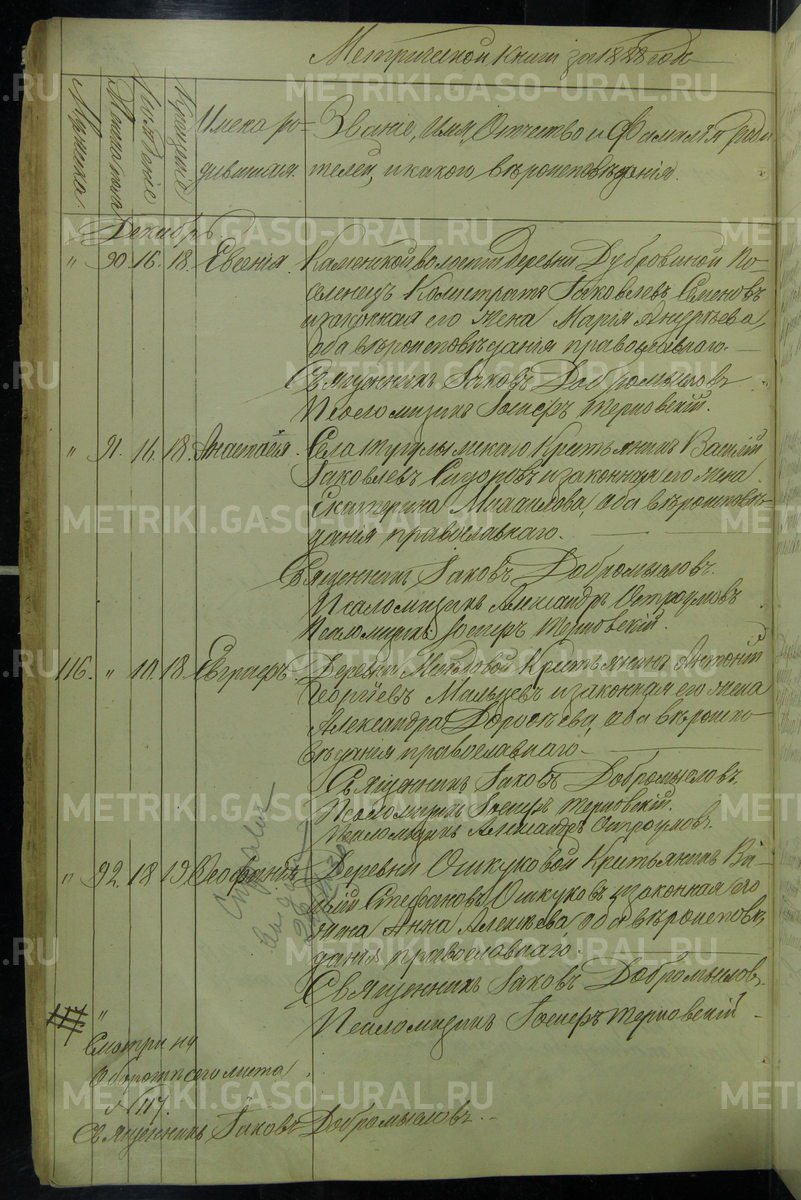 Метрической книги за 1888 год
Мужеска
Женска пола
Рождение
Крещение
Имена ро-
дившихся
Званіе, Имя, Отчество и Фамилія роди
телей, и какого вѣроисповѣданія.
Декабрь
" 90. 16. 18. Евгенія. Каменской волости деревни Дубровиной По-
селенецъ Калистратъ Яковлевъ Семеновъ
и законная его жена Марія
оба вѣроисповѣданія православнаго.
Священникъ Іаковъ Добромысловъ
Псаломщикъ Іосифъ Терновскій.
" 91. 16. 18. Анастасія. Села Тугулымскаго Крестьянинъ Василій
Яковлевъ Сидоровъ и законная его жена
Екатерина Михаилова, оба вѣроисповѣ-
данія православнаго.
Священникъ Іаковъ Добромысловъ.
Псаломщикъ Александръ Остроумовъ
Псаломщикъ Іосифъ Терновскій.
116. " 10. 18. Евграфъ. Деревни Крестьянинъ Антоній
Георгіевъ Мальцевъ и законная его жена
Александра Дороѳеева, оба вѣроиспо-
вѣданія православнаго.
Священникъ Іаковъ Добромысловъ.
Псаломщикъ Іосифъ Терновскій.
Псаломщикъ Александръ Остроумовъ.
" 92. 18 19. Ѳеофанія Деревни Ошкуковой Крестьянинъ Ва-
силій Стефановъ Ошкуковъ и законная его
жена Анна Алексѣева, оба вѣроисповѣ
данія православнаго.
Священникъ Іаковъ Добромысловъ.
Псаломщикъ Іосифъ Терновскій
Справка
выдана
"
Смотри на
оборотѣ сего листа
№ 117.
Священникъ Іаковъ Добромысловъ.
METRIKI.GASO-URAL.RU